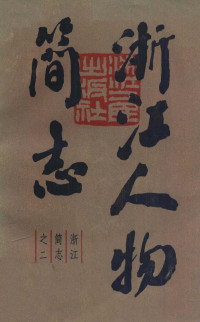 浙江人物
簡志
浙江人民
出版社
浙江
简志
之二